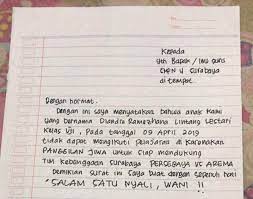 Kepada
Yth Bapak / Ibu guru
SMPN V Surabaya
di tempat
Dengan hormat.
Dengan ini saya menyatakan bahwa anak kami
yang bernama Diandra Ramezhana Lintang Lestari
Kelas VII, Pada tanggal 09 April 2019
tidak dapat mengikuti pelajaran di karenakan
PANGGILAN JIWA untuk siap mendukung
Tim kebanggaan Surabaya PERSEBAYA VS AREMA
Demikian surat ini saya buat dengan sepenuh hati
"SALAM SATU NYALI, WANI !!